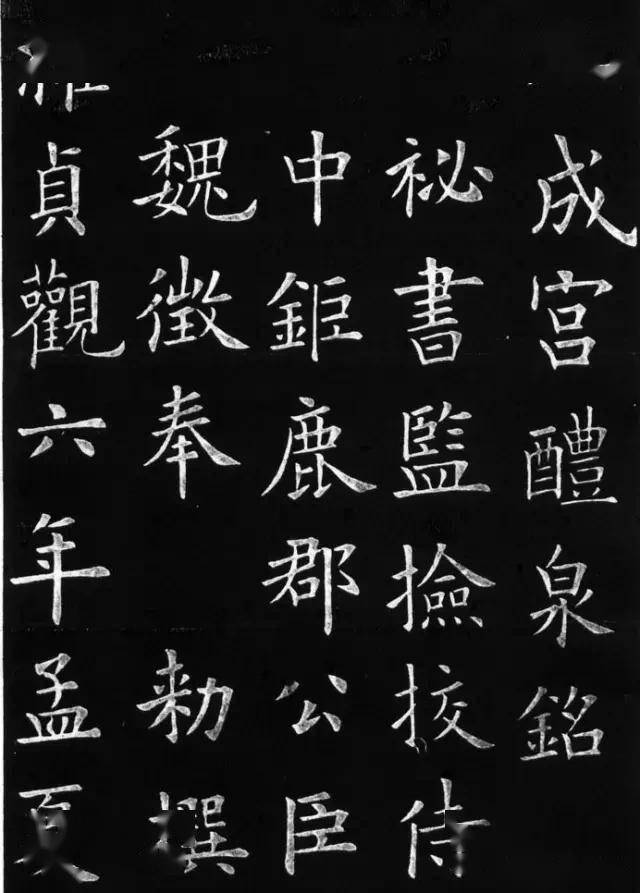 成宮醴泉銘
祕書監撿挍侍
中鉅鹿郡公臣
魏徵奉 勑撰
貞觀六年孟夏